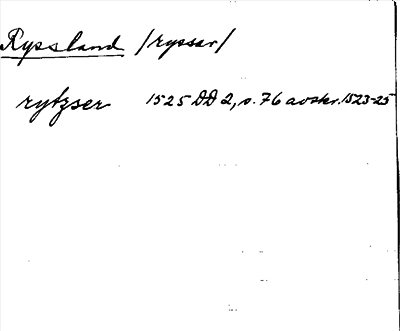 Ryssland /ryssar/
rytzser 1525 DD 2, s. 76 avskr. 1523-25